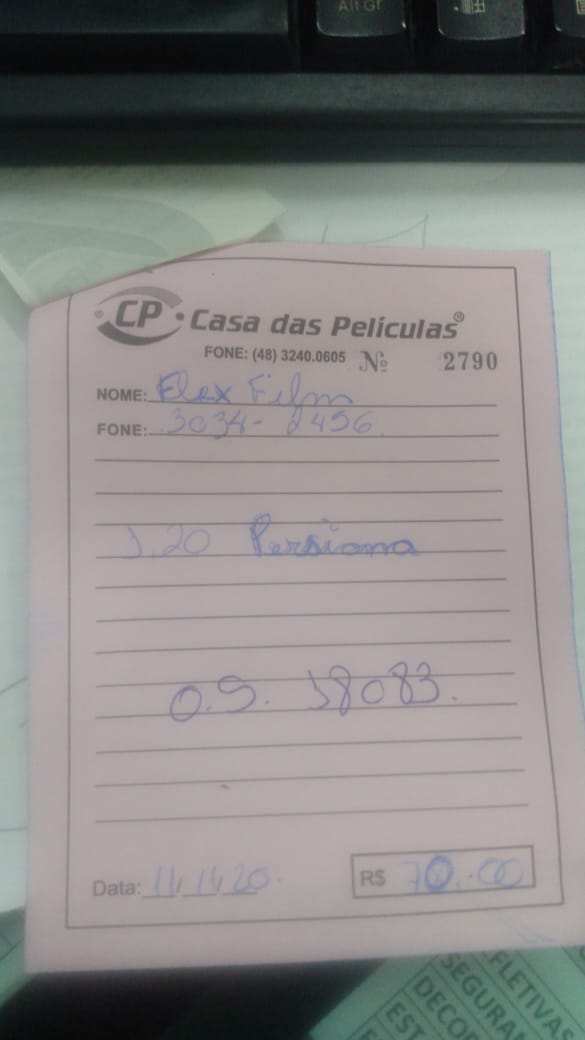 Alt Gr
CP Casa das Películas®
FONE: (48) 3240.0605 Nº 2790
NOME: Flex Film
FONE: 3034-2456
1,20 Persiana
O.S. 18083.
Data: 11/11/20
R$ 70,00
FLETIVAS
SEGURAN
DECOR
EST